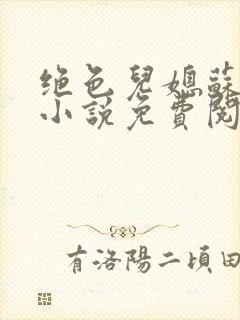 绝色兒媳蘇
小説免費閱
有洛陽二頃田